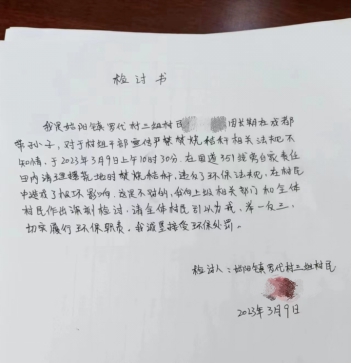 检讨书
我是始阳镇罗代村二组村民 因长期在成都
带孙子，对于村组干部宣传严禁焚烧秸秆相关法规不
知情，于2023年3月9日上午10时30分，在国道351线旁自家责任
田内清理 地时焚烧秸秆，违反了环保法规，在村民
中造成了极坏影响，这是不对的，我向上级相关部门和全体
村民作出深刻检讨，请全体村民引以为戒，举一反三，
切实履行环保职责。我诚恳接受环保处罚。
检讨人：始阳镇罗代村二组村民
2023年3月9日